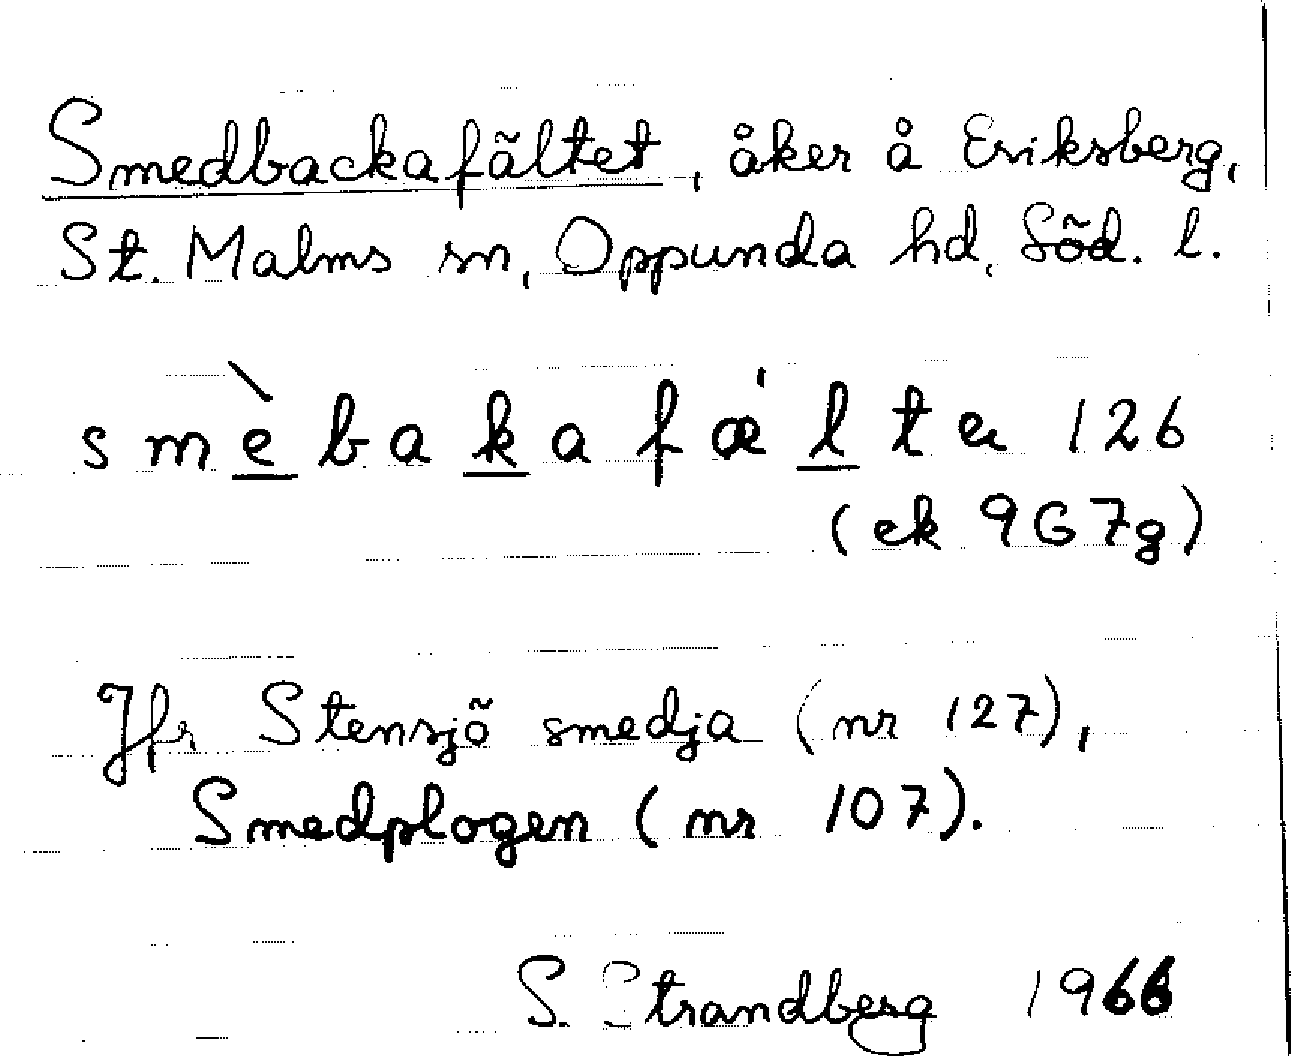 Smedbackafältet, åker å Eriksberg,
St. Malms sn, Oppunda hd, Söd. l.
smèbakafæ'lter 126
(ek 9G7g)
Jfr Stensjö smedja (nr 127),
Smedplogen (nr 107).
S. Strandberg 1966